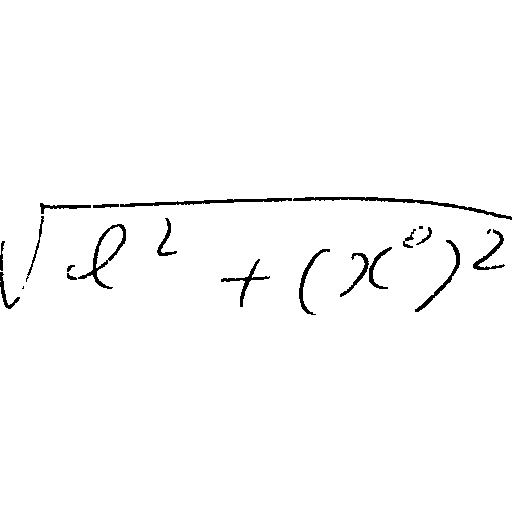 √(ℓ² + (x⁰)²)